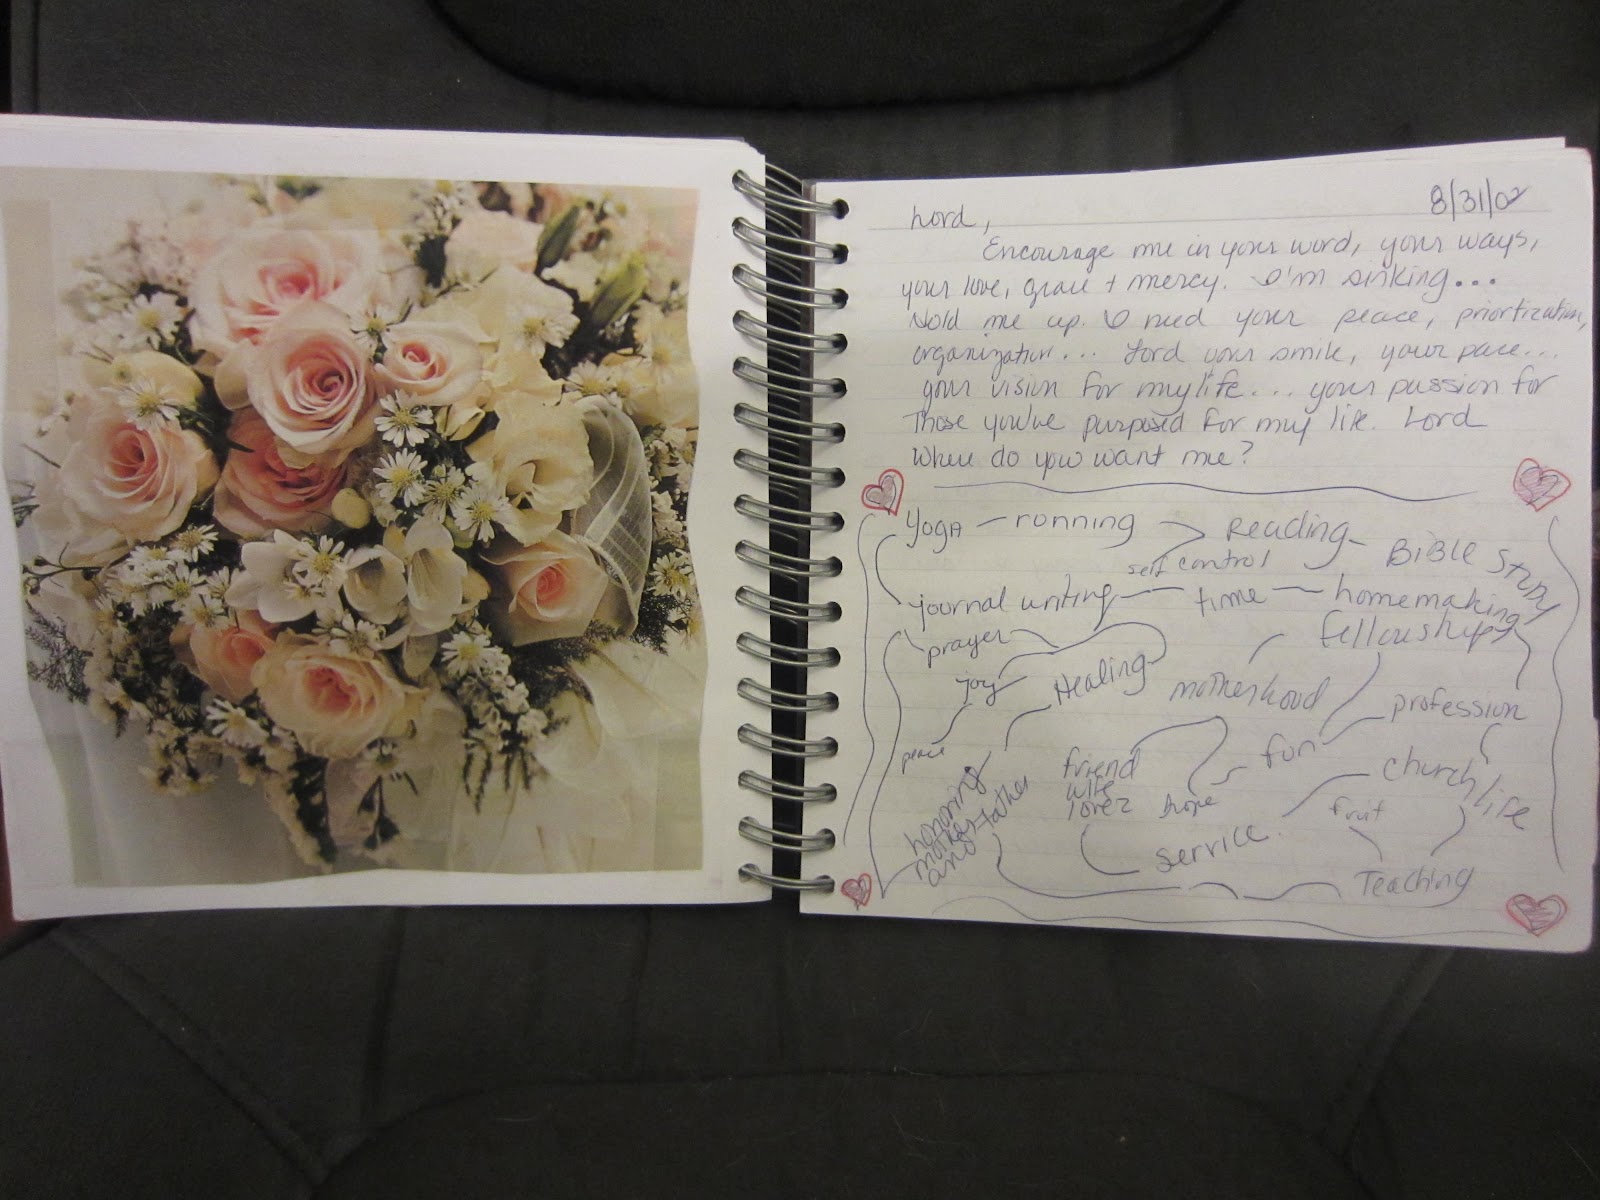 8/31/02
Lord,
Encourage me in your word, your ways,
your love, grace + mercy. I'm sinking...
Hold me up. I need your peace, priortization,
organization... Lord your smile, your pace...
your vision for my life.... your passion for
those you've purposed for my life. Lord
Where do you want me?
Yoga - running Reading - Bible Study
self control
journal writing - time - homemaking
prayer fellowship
joy Healing motherhood profession
peace fun
friend church life
wife
lover hope fruit
honoring
mother father
and
service
Teaching